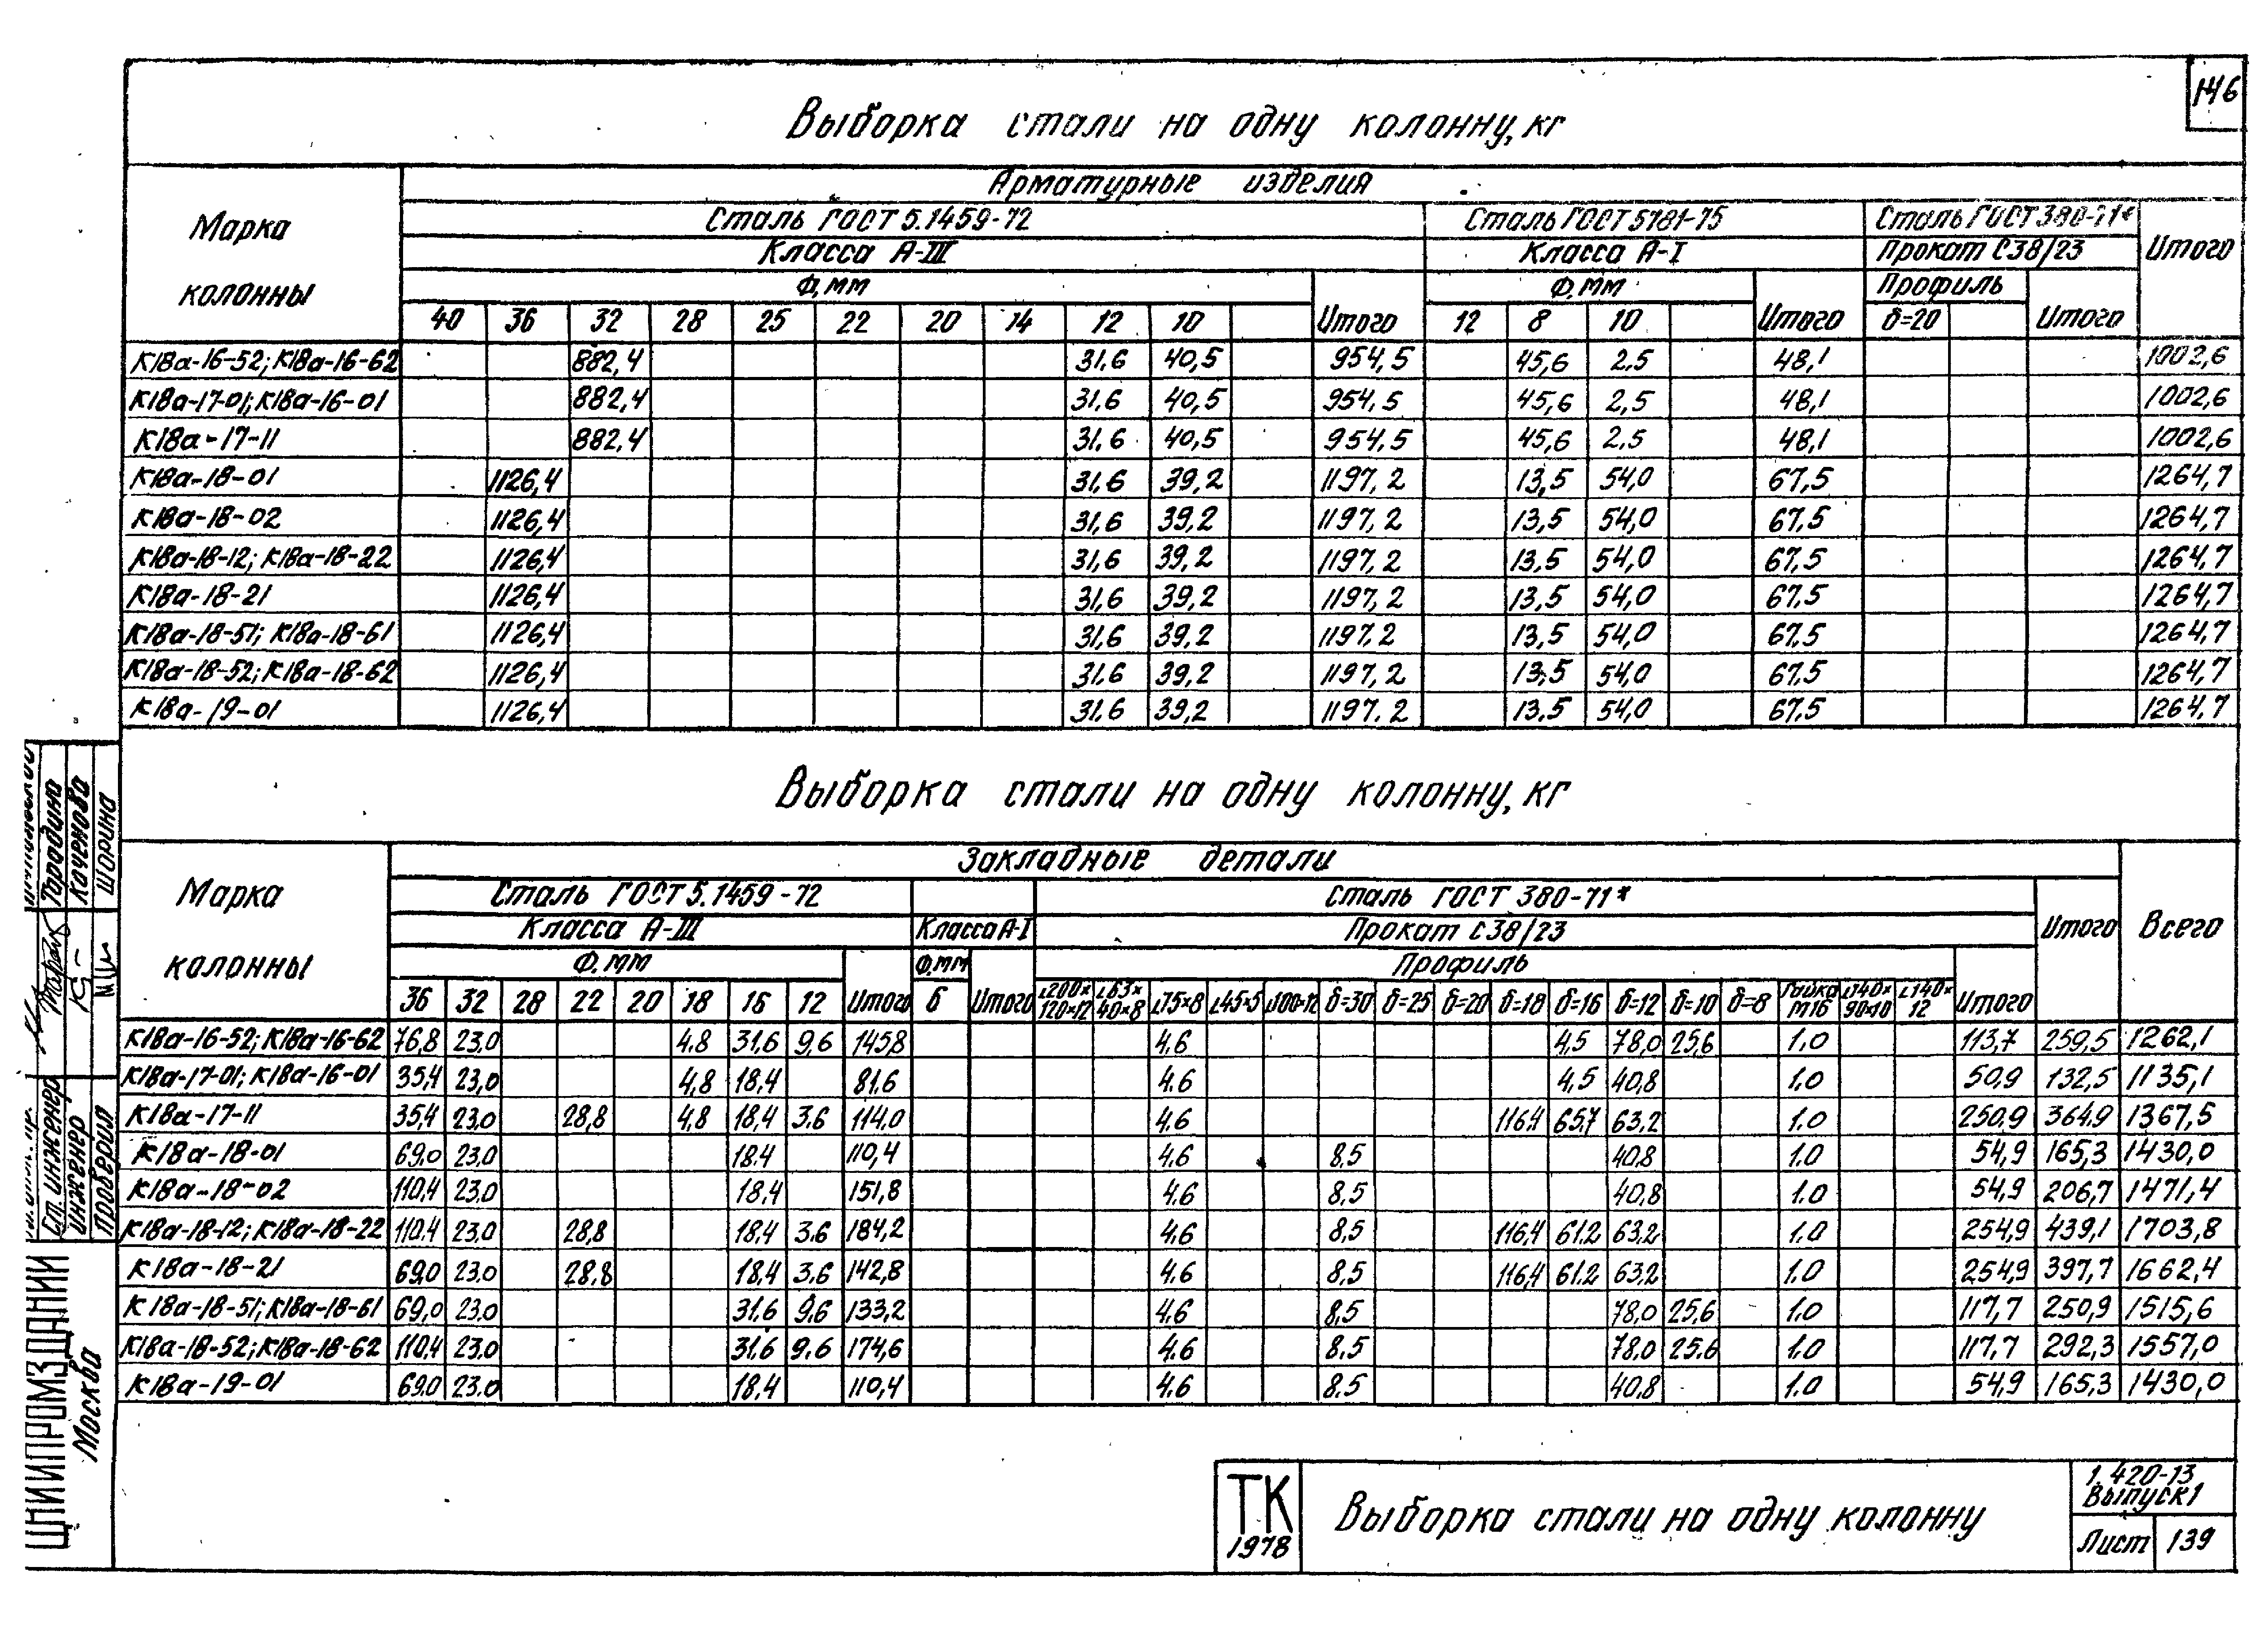 146
Выборка стали на одну колонну, кг
Марка колонны
Арматурные изделия
Сталь ГОСТ 5.1459-72 Сталь ГОСТ 5781-75 Сталь ГОСТ 380-71* Итого
Класса А-III Класса А-I Прокат С38/23
Ф, мм Итого Ф, мм Итого Профиль Итого
40 36 32 28 25 22 20 14 12 10 12 8 10 δ=20
К18а-16-52; К18а-16-62 882,4 31.6 40,5 954,5 45,6 2.5 48,1 1002,6
К18а-17-01; К18а-16-01 882,4 31.6 40,5 954,5 45,6 2,5 48,1 1002,6
К18а-17-11 882,4 31.6 40,5 954,5 45,6 2.5 48,1 1002,6
К18а-18-01 1126,4 31,6 39,2 1197,2 13,5 54,0 67,5 1264,7
К18а-18-02 1126,4 31,6 39,2 1197,2 13,5 54,0 67,5 1264,7
К18а-18-12; К18а-18-22 1126,4 31,6 39,2 1197,2 13,5 54,0 67,5 1264,7
К18а-18-21 1126,4 31,6 39,2 1197,2 13,5 54,0 67,5 1264,7
К18а-18-51; К18а-18-61 1126,4 31,6 39,2 1197.2 13,5 54,0 67,5 1264,7
К18а-18-52; К18а-18-62 1126,4 31.6 39,2 1197,2 13,5 54,0 67,5 1264,7
К18а-19-01 1126,4 31.6 39,2 1197.2 13.5 54,0 67,5 1264,7
Выборка стали на одну колонну, кг
Марка колонны
Закладные детали Всего
Сталь ГОСТ 5.1459-72 Сталь ГОСТ 380-71* Итого
Класса А-III Класса А-I Прокат С38/23
Ф, мм Итого Ф, мм Итого Профиль Итого
36 32 28 22 20 18 16 12 6 ∟200×120×12 ∟63×40×8 ∟75×8 ∟45×5 ∟100×12 δ=30 δ=25 δ=20 δ=18 δ=16 δ=12 δ=10 δ=8 Гайка М16 ∟140×90×10 ∟140×12
К18а-16-52; К18а-16-62 76,8 23,0 4.8 31.6 9,6 145,8 4.6 4,5 78,0 25,6 1.0 113,7 259,5 1262,1
К18а-17-01; К18а-16-01 35,4 23,0 4,8 18.4 81.6 4.6 4,5 40,8 1.0 50,9 132,5 1135,1
К18а-17-11 35,4 23,0 28,8 4,8 18,4 3.6 114.0 4.6 116.4 65,7 63,2 1.0 250,9 364,9 1367,5
К18а-18-01 69.0 23.0 18.4 110,4 4.6 8,5 40,8 1.0 54,9 165,3 1430,0
К18а-18-02 110.4 23.0 18.4 151,8 4.6 8.5 40,8 1.0 54,9 206,7 1471,4
К18а-18-12; К18а-18-22 110.4 23.0 28,8 18.4 3.6 184,2 4.6 8,5 116,4 61.2 63,2 1.0 254,9 439,1 1703,8
К18а-18-21 69,0 23.0 28,8 18,4 3,6 142,8 4.6 8,5 116,4 61.2 63,2 1.0 254,9 397,7 1662,4
К18а-18-51; К18а-18-61 69,0 23.0 31.6 9.6 133,2 4.6 8,5 78,0 25,6 1.0 117,7 250,9 1515,6
К18а-18-52; К18а-18-62 110,4 23.0 31.6 9.6 174,6 4.6 8.5 78,0 25.6 1.0 117.7 292,3 1557,0
К18а-19-01 69.0 23.0 18.4 110,4 4.6 8.5 40,8 1.0 54,9 165,3 1430,0
Тарадина
Коченова
Шорина
Ст. инженер
инженер
проверил
ЦНИИПРОМЗДАНИЙ
Москва
ТК
1978
Выборка стали на одну колонну
1.420-13
Выпуск 1
Лист 139